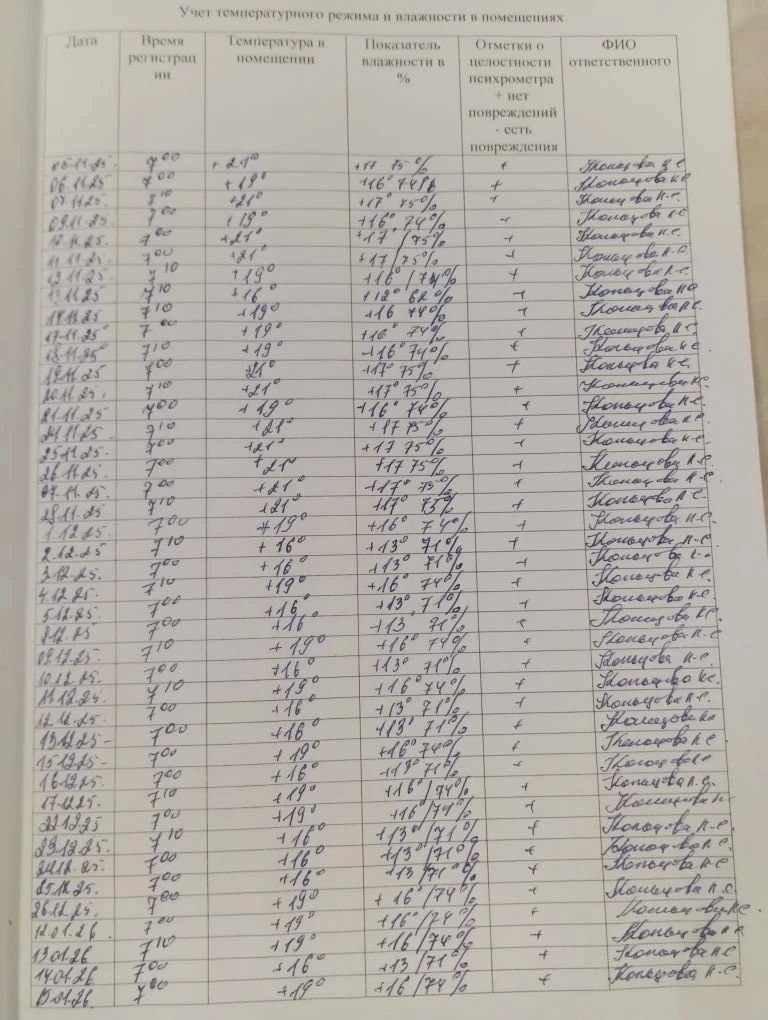 Учет температурного режима и влажности в помещениях
Дата Время регистрации Температура в помещении Показатель влажности в % Отметки о целостности психрометра + нет повреждений - есть повреждения ФИО ответственного
05.11.25. 7⁰⁰ +21° +17 75% + Кольцова Н.С
06.11.25 7⁰⁰ +19° +16° 74% + Кольцова Н.С
07.11.25 7¹⁰ +21° +17° 75% + Кольцова Н.С.
09.11.25 7⁰⁰ +19° +16° 74% + Кольцова Н.С
10.11.25. 7⁰⁰ +21° +17°/75% + Кольцова Н.С.
11.11.25 7⁰⁰ +21° +17/75% + Кольцова Н.С
12.11.25 7¹⁰ +19° +16°/74% + Кольцова Н.С.
13.11.25 7¹⁰ +16° +12° 62% + Кольцова Н.С
14.11.25 7¹⁰ +19° +16 74% + Кольцова Н.С.
17.11.25 7⁰⁰ +19° +16° 74% + Кольцова Н.С.
18.11.25 7¹⁰ +19° +16° 74% + Кольцова Н.С.
19.11.25 7⁰⁰ 21° +17° 75% + Кольцова Н.С.
20.11.25. 7¹⁰ +21° +17° 75% + Кольцова Н.С.
21.11.25 7⁰⁰ +19° +16° 74% + Кольцова Н.С.
24.11.25 7¹⁰ +21° +17 75% + Кольцова Н.С.
25.11.25 7⁰⁰ +21° +17 75% + Кольцова Н.С.
26.11.25 7⁰⁰ +21° +17 75% + Кольцова Н.С.
27.11.25. 7⁰⁰ +21° +17° 75% + Кольцова Н.С.
28.11.25. 7¹⁰ +21° +17° 75% + Кольцова Н.С
1.12.25 7⁰⁰ +19° +16° 74% + Кольцова Н.С.
2.12.25 7¹⁰ +16° +13° 71% + Кольцова Н.С.
3.12.25. 7⁰⁰ +16° +13° 71% + Кольцова Н.С
4.12.25 7¹⁰ +19° +16° 74% + Кольцова Н.С.
5.12.25 7⁰⁰ +16° +13° 71% + Кольцова Н.С.
8.12.25 7⁰⁰ +16° +13 71% + Кольцова Н.С.
09.12.25. 7¹⁰ +19° +16° 74% + Кольцова Н.С
10.12.25 7⁰⁰ +16° +13° 71% + Кольцова Н.С.
11.12.25 7¹⁰ +19° +16° 74% + Кольцова Н.С.
12.12.25. 7⁰⁰ +16° +13° 71% + Кольцова Н.С.
13.12.25 7⁰⁰ +16° +13° 71% + Кольцова Н.С
15.12.25 7⁰⁰ +19° +16° 74% + Кольцова Н.С
16.12.25 7⁰⁰ +16° +13° 71% + Кольцова Н.С
17.12.25. 7¹⁰ +19° +16°/74% + Кольцова Н.С.
22.12.25 7⁰⁰ +19° +16°/74% + Кольцова Н.С
23.12.25. 7¹⁰ +16° +13°/71% + Кольцова Н.С
24.12.25 7⁰⁰ +16° +13°/71% + Кольцова Н.С.
25.12.25 7⁰⁰ +16° +13/71% + Кольцова Н.С
26.12.25. 7⁰⁰ +19° +16°/74% + Кольцова Н.С
12.01.26 7⁰⁰ +19° +16°/74% + Кольцова Н.С.
13.01.26 7¹⁰ +19° +16/74% + Кольцова Н.С
14.01.26 7⁰⁰ +16° +13/71% + Кольцова Н.С
15.01.26. 7⁰⁰ +19° +16/74% + Кольцова Н.С.